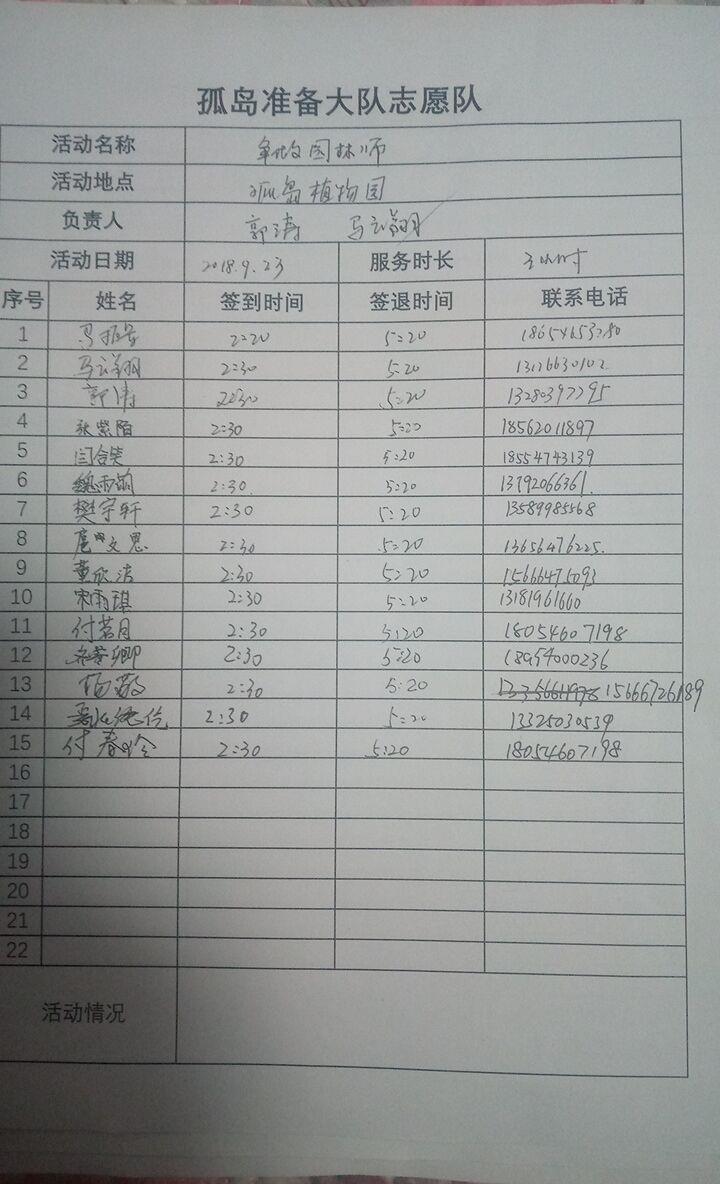 孤岛准备大队志愿队
活动名称 争做园林师
活动地点 孤岛植物园
负责人 郭涛 马云翔
活动日期 2018.9.23 服务时长 3小时
序号 姓名 签到时间 签退时间 联系电话
1 2:20 5:20
2 马云翔 2:30 5:20 13176630102
3 郭涛 2:30 5:20 13280397795
4 紫陌 2:30 5:20 18562011897
5 闫合笑 2:30 5:20 18554743139
6 魏雨萌 2:30 5:20 13792066361.
7 樊宇轩 2:30 5:20 13589985568
8 文思 2:30 5:20 13656476225.
9 董欣洁 2:30 5:20 15666475093
10 宋雨琪 2:30 5:20 13181961660
11 付茗月 2:30 5:20 18054607198
12 2:30 5:20 18954000236
13 杨敬 2:30 5:20 15666726189
14 2:30 5:20 13325030539
15 付春玲 2:30 5:20 18054607198
16
17
18
19
20
21
22
活动情况